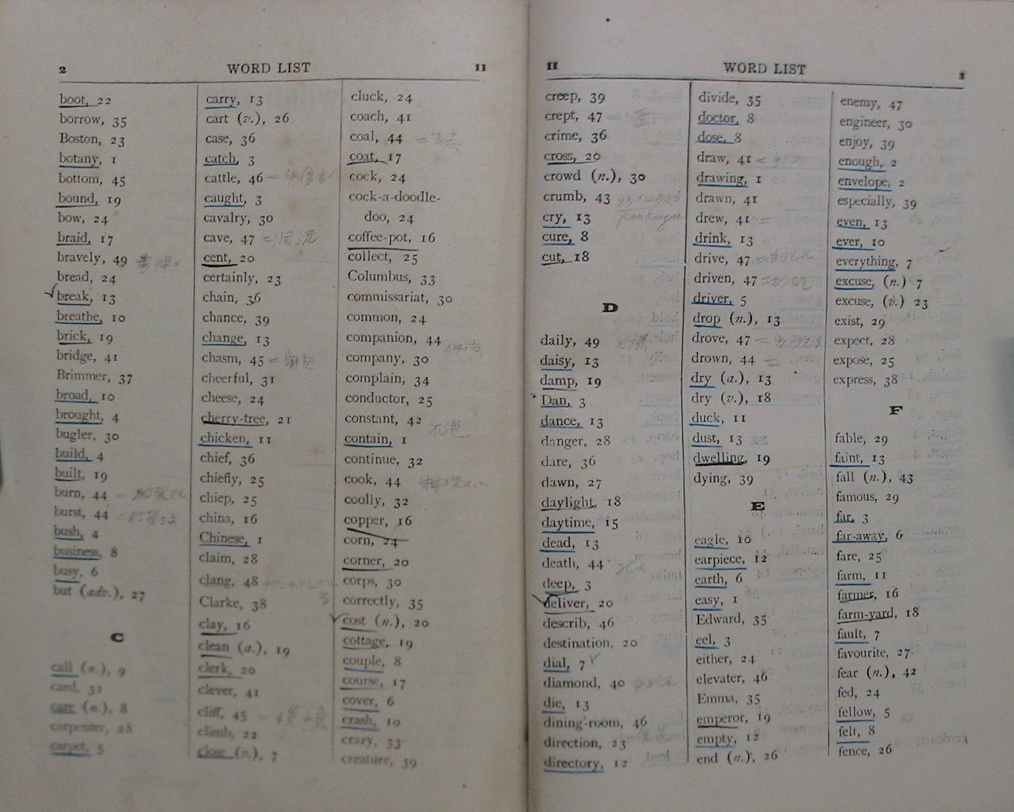 2 WORD LIST II
boot, 22
borrow, 35
Boston, 23
botany, 1
bottom, 45
bound, 19
bow, 24
braid, 17
bravely, 49
bread, 24
break, 13
breathe, 10
brick, 19
bridge, 41
Brimmer, 37
broad, 10
brought, 4
bugler, 30
build, 4
built, 19
burn, 44
burst, 44
bush, 4
business, 8
busy, 6
but (adv.), 27
C
call (n.), 9
card, 32
care (n.), 8
carpenter, 28
carpet, 5
carry, 13
cart (v.), 26
case, 36
catch, 3
cattle, 46
caught, 3
cavalry, 30
cave, 47
cent, 20
certainly, 23
chain, 36
chance, 39
change, 13
chasm, 45
cheerful, 31
cheese, 24
cherry-tree, 21
chicken, 11
chief, 36
chiefly, 25
chiep, 25
china, 16
Chinese, 1
claim, 28
clang, 48
Clarke, 38
clay, 16
clean (a.), 19
clerk, 20
clever, 41
cliff, 45
climb, 22
close (v.), 7
cluck, 24
coach, 41
coal, 44
coat, 17
cock, 24
cock-a-doodle-
doo, 24
coffee-pot, 16
collect, 25
Columbus, 33
commissariat, 30
common, 24
companion, 44
company, 30
complain, 34
conductor, 25
constant, 42
不绝
contain, 1
continue, 32
cook, 44
coolly, 32
copper, 16
corn, 24
corner, 20
corps, 30
correctly, 35
cost (n.), 20
cottage, 19
couple, 8
course, 17
cover, 6
crash, 10
crazy, 33
creature, 39
II WORD LIST 3
creep, 39
crept, 47
crime, 36
cross, 20
crowd (n.), 30
crumb, 43
cry, 13
cure, 8
cut, 18
D
daily, 49
daisy, 13
damp, 19
Dan, 3
dance, 13
danger, 28
dare, 36
dawn, 27
daylight, 18
daytime, 15
dead, 13
death, 44
deep, 3
deliver, 20
describ, 46
destination, 20
dial, 7
diamond, 40
die, 13
dining-room, 46
direction, 23
directory, 12
divide, 35
doctor, 8
dose, 8
draw, 41
drawing, 1
drawn, 41
drew, 41
drink, 13
drive, 47
driven, 47
driver, 5
drop (n.), 13
drove, 47
drown, 44
dry (a.), 13
dry (v.), 18
duck, 11
dust, 13
dwelling, 19
dying, 39
E
eagle, 10
earpiece, 12
earth, 6
easy, 1
Edward, 35
eel, 3
either, 24
elevater, 46
Emma, 35
emperor, 19
empty, 12
end (n.), 26
enemy, 47
engineer, 30
enjoy, 39
enough, 2
envelope, 2
especially, 39
even, 13
ever, 10
everything, 7
excuse, (n.) 7
excuse, (v.) 23
exist, 29
expect, 28
expose, 25
express, 38
F
fable, 29
faint, 13
fall (n.), 43
famous, 29
far, 3
far-away, 6
fare, 25
farm, 11
farmer, 16
farm-yard, 18
fault, 7
favourite, 27
fear (n.), 42
fed, 24
fellow, 5
felt, 8
fence, 26